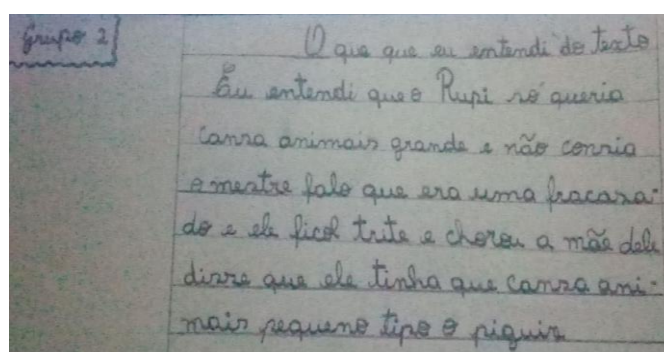 Grupo 2
O que que eu entendi do texto
Eu entendi que o Rupi só queria
cansa animais grande e não consia
o mestre falo que era uma fracasa-
do e ele ficol trite e chorou a mãe dele
disse que ele tinha que cansa ani-
mais pequeno tipo o piguis